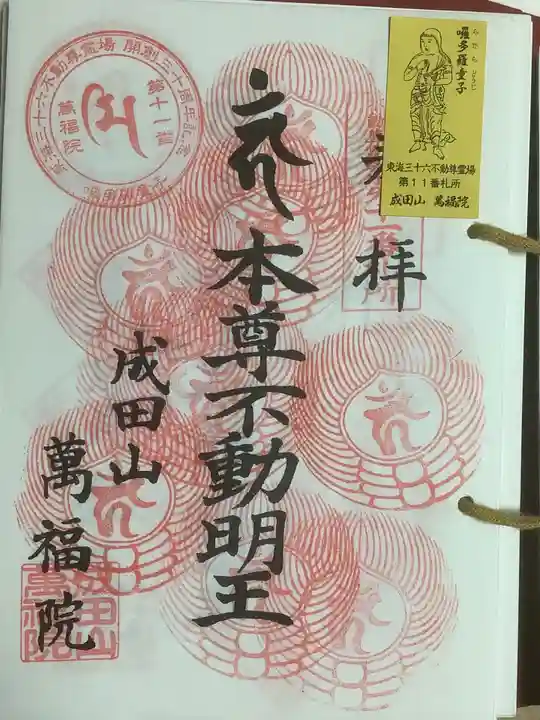 奉拝
本尊不動明王
成田山
萬福院
東海三十六不動尊霊場 開創三十周年記念
第十一番
萬福院
成田山
萬福院
らたら どうじ
囉多羅童子
東海三十六不動尊霊場
第11番札所
成田山 萬福院